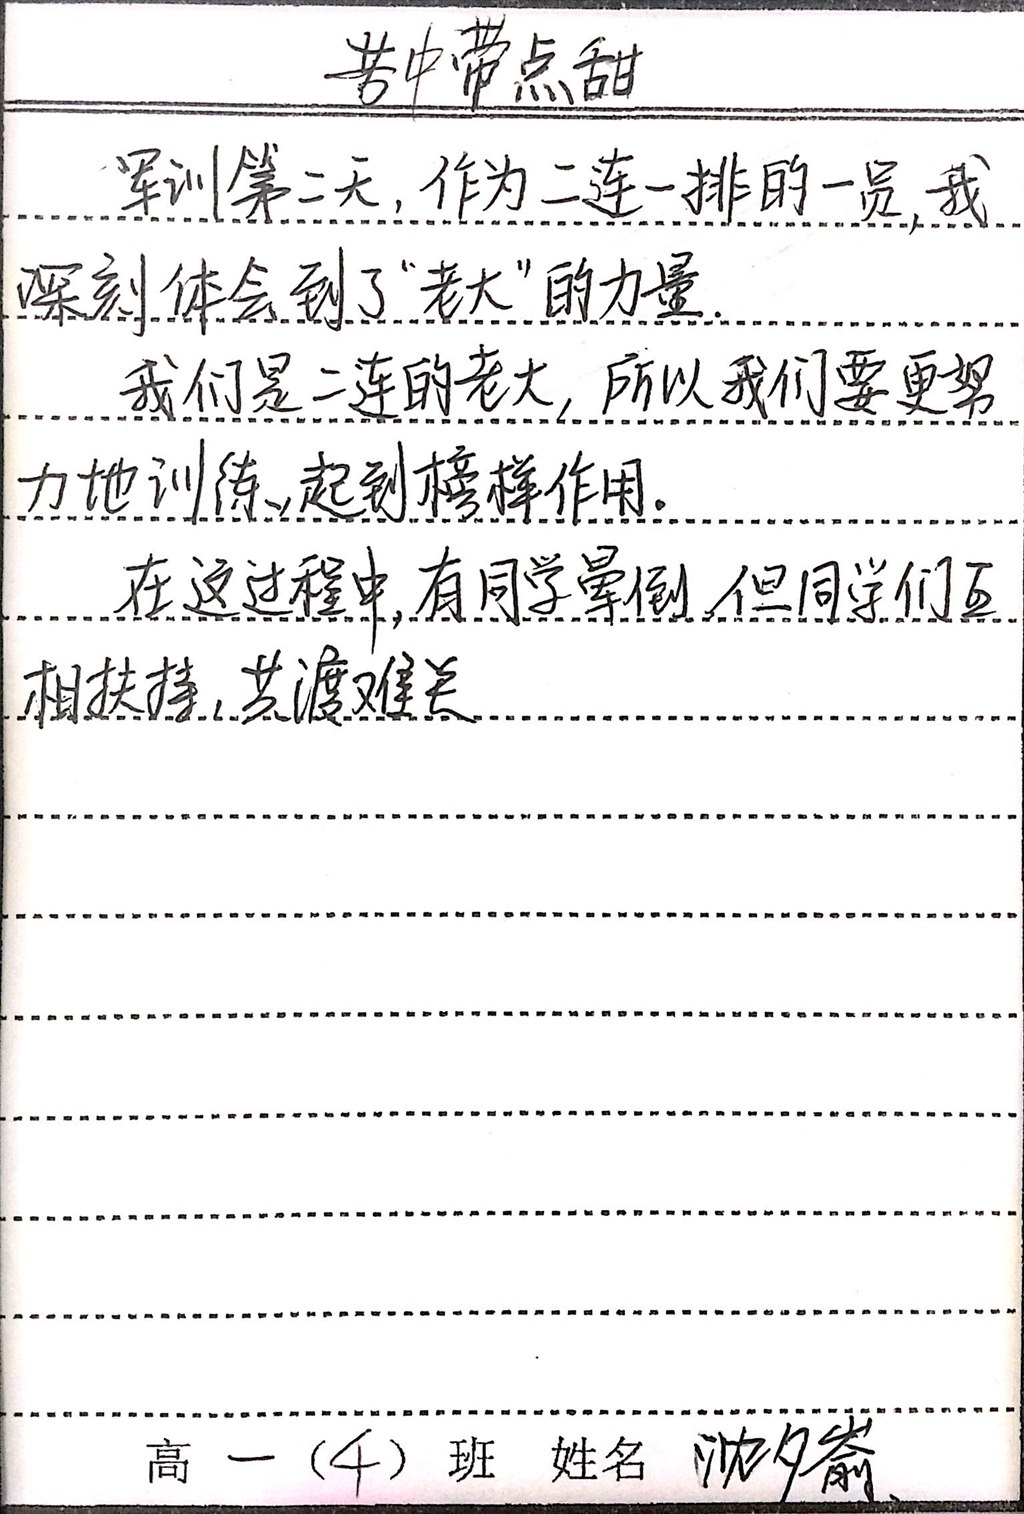 苦中带点甜
军训第二天，作为二连一排的一员，我
深刻体会到了“老大”的力量.
我们是二连的老大，所以我们要更努
力地训练，起到榜样作用。
在这过程中，有同学晕倒，但同学们互
相扶持，共渡难关
高一（4）班 姓名 沈夕